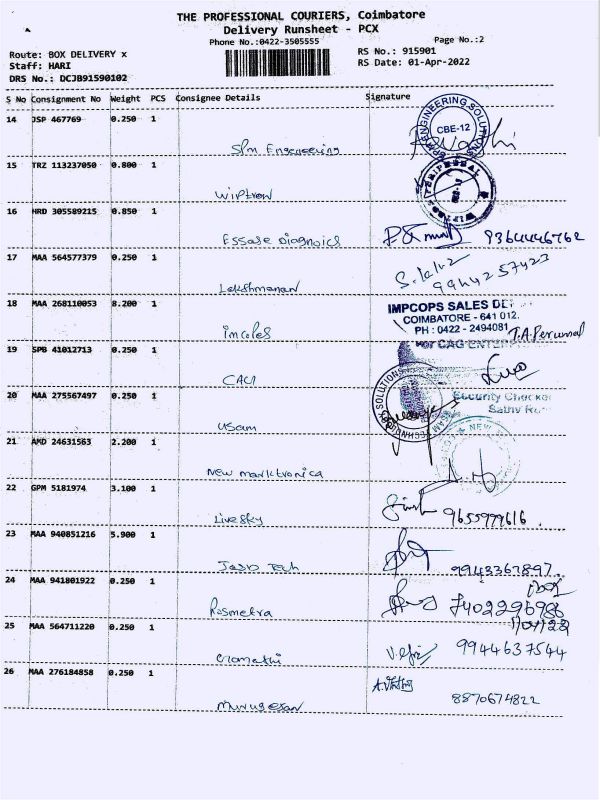 THE PROFESSIONAL COURIERS, Coimbatore
Delivery Runsheet - PCX
Phone No.:0422-3505555 Page No.:2
Route: BOX DELIVERY x RS No.: 915901
Staff: HARI RS Date: 01-Apr-2022
DRS No.: DCJB91590102
S No Consignment No Weight PCS Consignee Details Signature
14 JSP 467769 0.250 1
SPM Engeneering
ENGINEERING SOLUTIONS
CBE-12
15 TRZ 113237050 0.800 1
Wiptron
16 HRD 305589215 0.850 1
Essase Diagnoics 9364446762
17 MAA 564577379 0.250 1
Lakshmanan 9944257423
18 MAA 268110053 8.200 1
Imcoles
IMPCOPS SALES DE
COIMBATORE - 641 012.
PH : 0422 - 2494081 T.A. Perumal
19 SPB 41012713 0.250 1
For CAG ENTER
CAGI
20 MAA 275567497 0.250 1
Security Checked
Usam
SOLUTIONS
21 AMD 24631563 2.200 1
NEW
New marktronica
22 GPM 5181974 3.100 1
Livesky 9655999616.
23 MAA 940851216 5.900 1
Jasp Tech 9943367897.
24 MAA 941801922 0.250 1
Rosmetra 7402296988
25 MAA 564711220 0.250 1
Gomathi 9944637544
26 MAA 276184858 0.250 1
Murugesan 8870674822